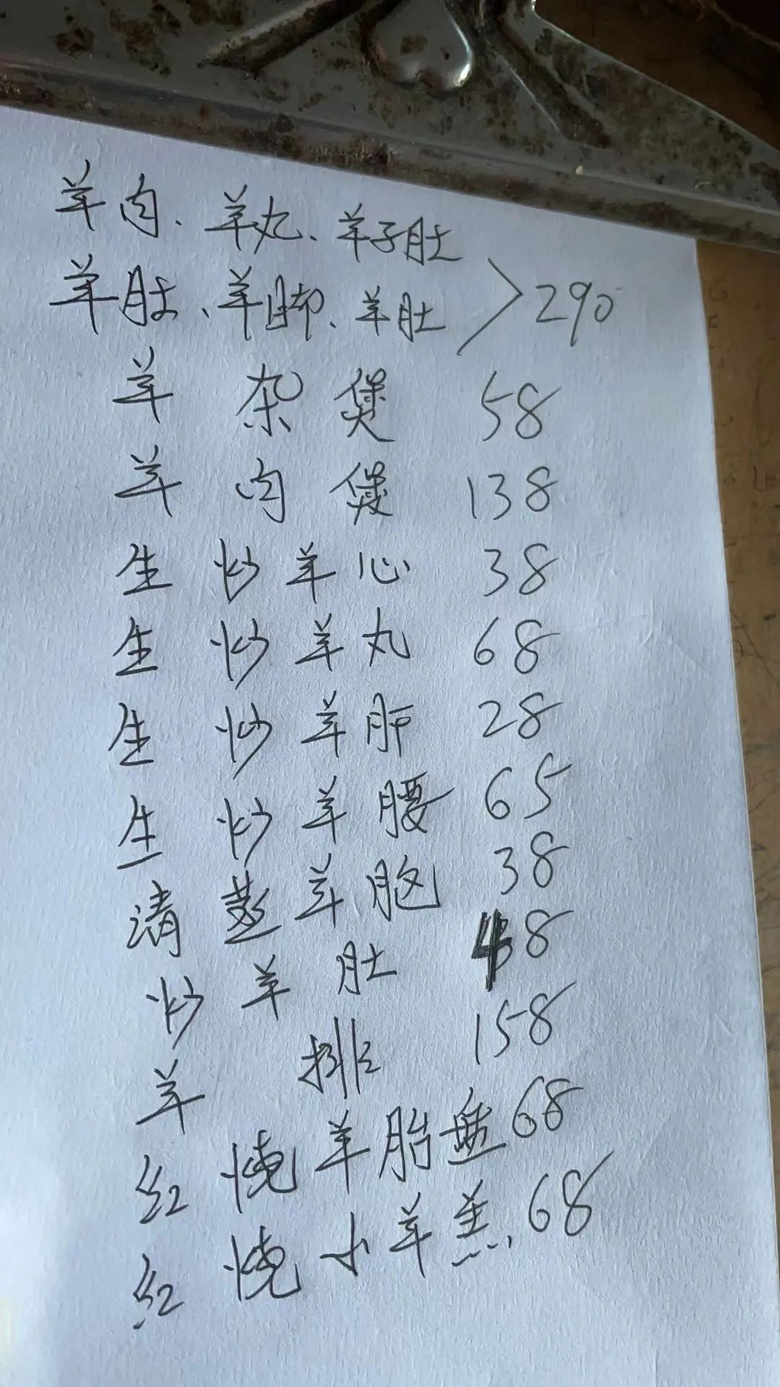 羊肉、羊丸、羊子肚
羊肚、羊脚、羊肚 > 290
羊杂煲 58
羊肉煲 138
生炒羊心 38
生炒羊丸 68
生炒羊肝 28
生炒羊腰 65
清蒸羊胸 38
炒羊肚 48
羊排 158
红烧羊胎盘 68
红烧小羊羔 68